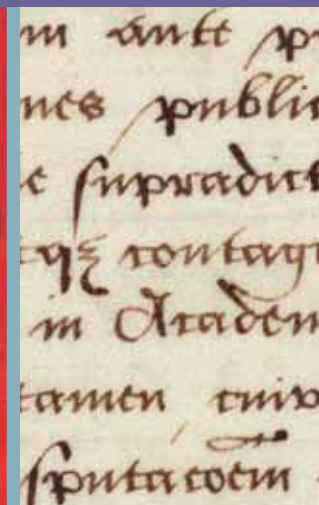 m ante p
nes public
e supradict
tqꝫ contagi
in Academ
tamen cuiv
sputacoem